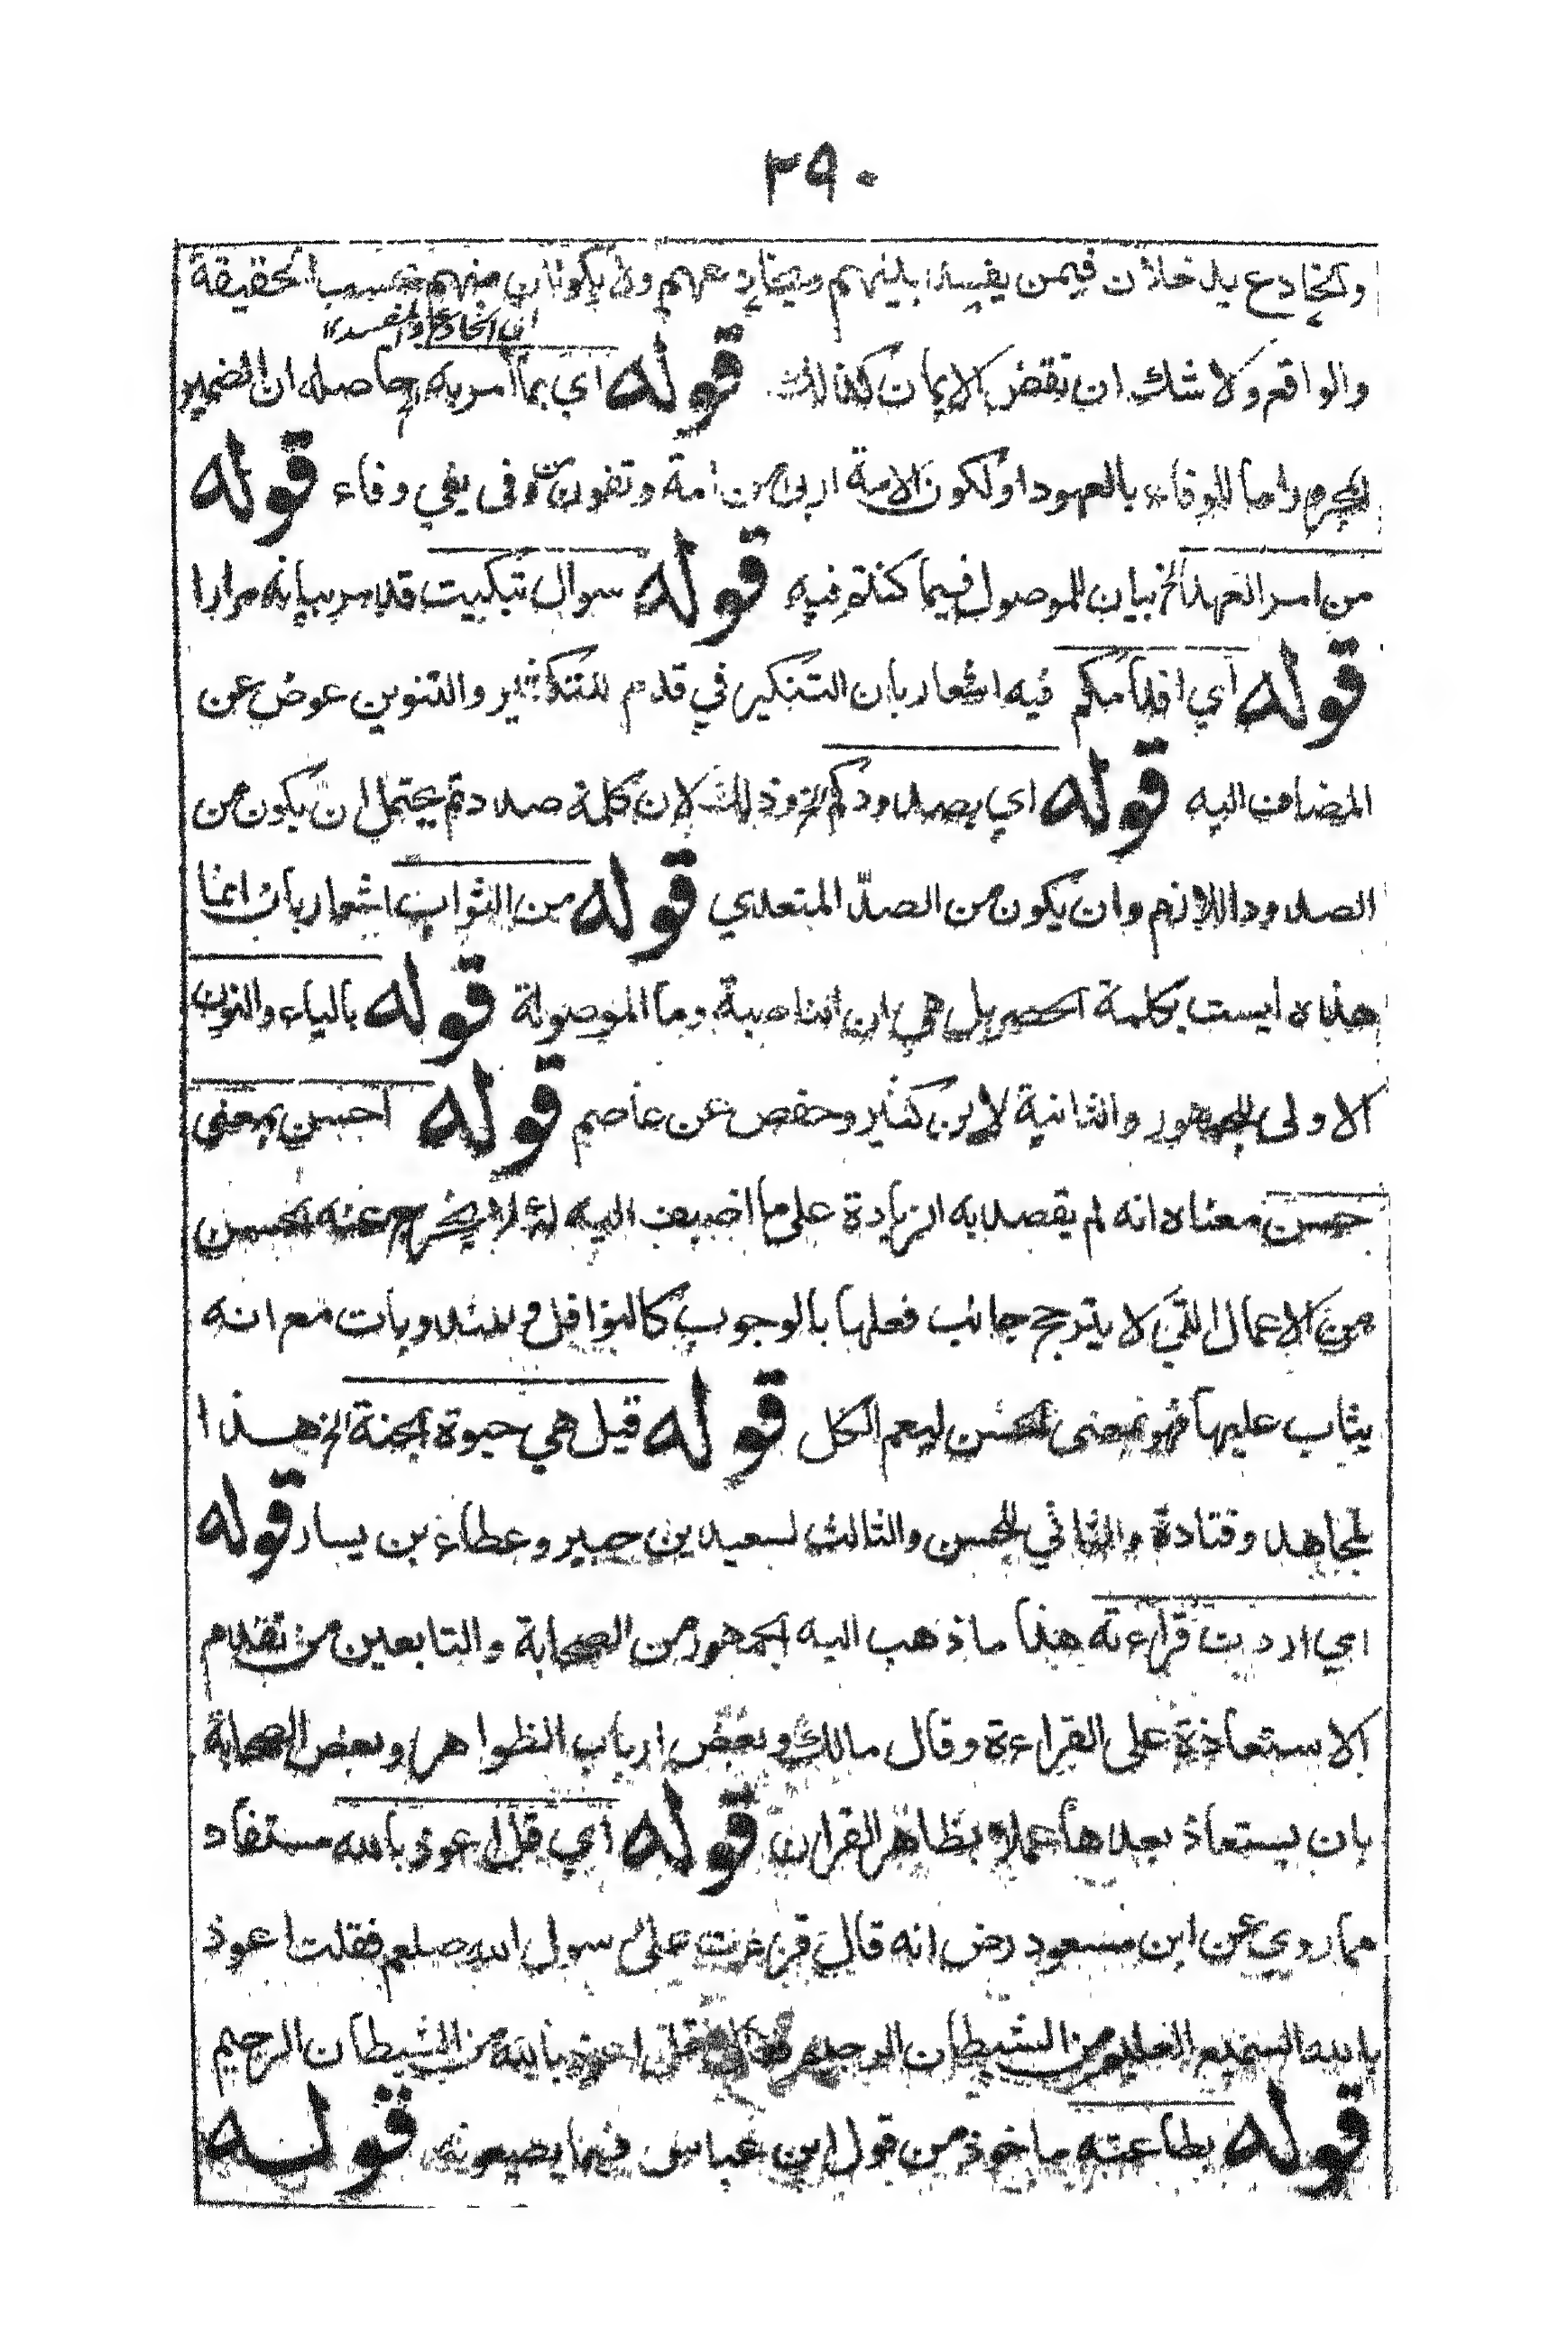 ٢٩٠
والمخادع يدخلان فيمن يفسد بينهم ويخادعهم ولا يكونان منهم بحسب الحقيقة
اي الخادع والمفسد ١٢
والواقع ولا شك ان نقض الايمان كذلك قوله اي بما امر به حاصله ان الضمير
اما للوفاء بالعهود او لكون الامة اربى من امة وتفون وفى يفي وفاء قوله
من امر العهد الخ بيان للموصول فيما كنتم فيه قوله سوال تبكيت قد مر بيانه مرارا
قوله اي اقدامكم فيه اشعار بان التنكير في قدم للتكثير والتنوين عوض عن
المضاف اليه قوله اي بصدودكم الخ وذلك لان كلمة صددتم يحتمل ان يكون من
الصدود اللازم وان يكون من الصدّ المتعدي قوله من الثواب اشعار بان انما
هذه ليست بكلمة الحصر بل هي ان الناصبة وما الموصولة قوله بالياء والنون
الاولى للجمهور والثانية لابن كثير وحفص عن عاصم قوله احسن بمعنى
حسن معناه انه لم يقصد به الزيادة على ما اضيف اليه لئلا يخرج عنه الحسن
من الاعمال التي لا يترجح جانب فعلها بالوجوب كالنوافل والمندوبات مع انه
يثاب عليها فهو بمعنى الحسن ليعم الكل قوله قيل هي حيوة الجنة الخ هذا
لمجاهد وقتادة والثاني للحسن والثالث لسعيد بن جبير وعطاء بن يسار قوله
اي اردت قراءته هذا ما ذهب اليه الجمهور من الصحابة والتابعين من تقدم
الاستعاذة على القراءة وقال مالك وبعض ارباب الظواهر وبعض الصحابة
بان يستعاذ بعدها عملا بظاهر القران قوله اي قل اعوذ بالله مستفاد
مما روي عن ابن مسعود رض انه قال قرءت على رسول الله صلعم فقلت اعوذ
بالله السميع العليم من الشيطان الرجيم فقال قل اعوذ بالله من الشيطان الرجيم
قوله بطاعته ماخوذ من قول ابن عباس فيما يطيعونه قوله